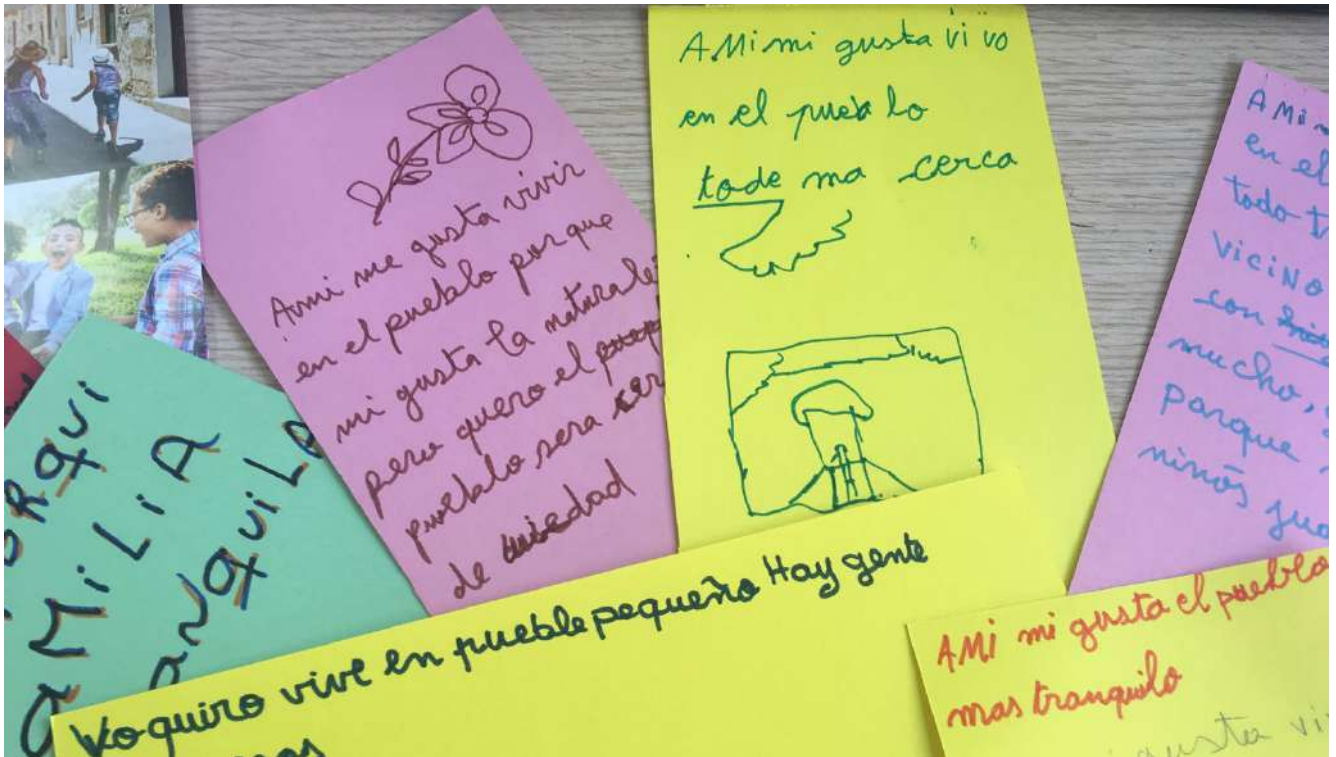 Ami me gusta vivir
en el pueblo porque
mi gusta la naturale
pero quero el
pueblo sera cer
de ciudad
A Mi mi gusta vivo
en el pueblo
tode ma cerca
A Mi
en el
todo
viciNo
con
mucho,
parque
ninõs
RQUi
aMiLiA
aNQUiLA
Yo quiro vive en pueble pequeño Hay gente
AMi mi gusta el pueblo
mas tranquilo
gusta vi